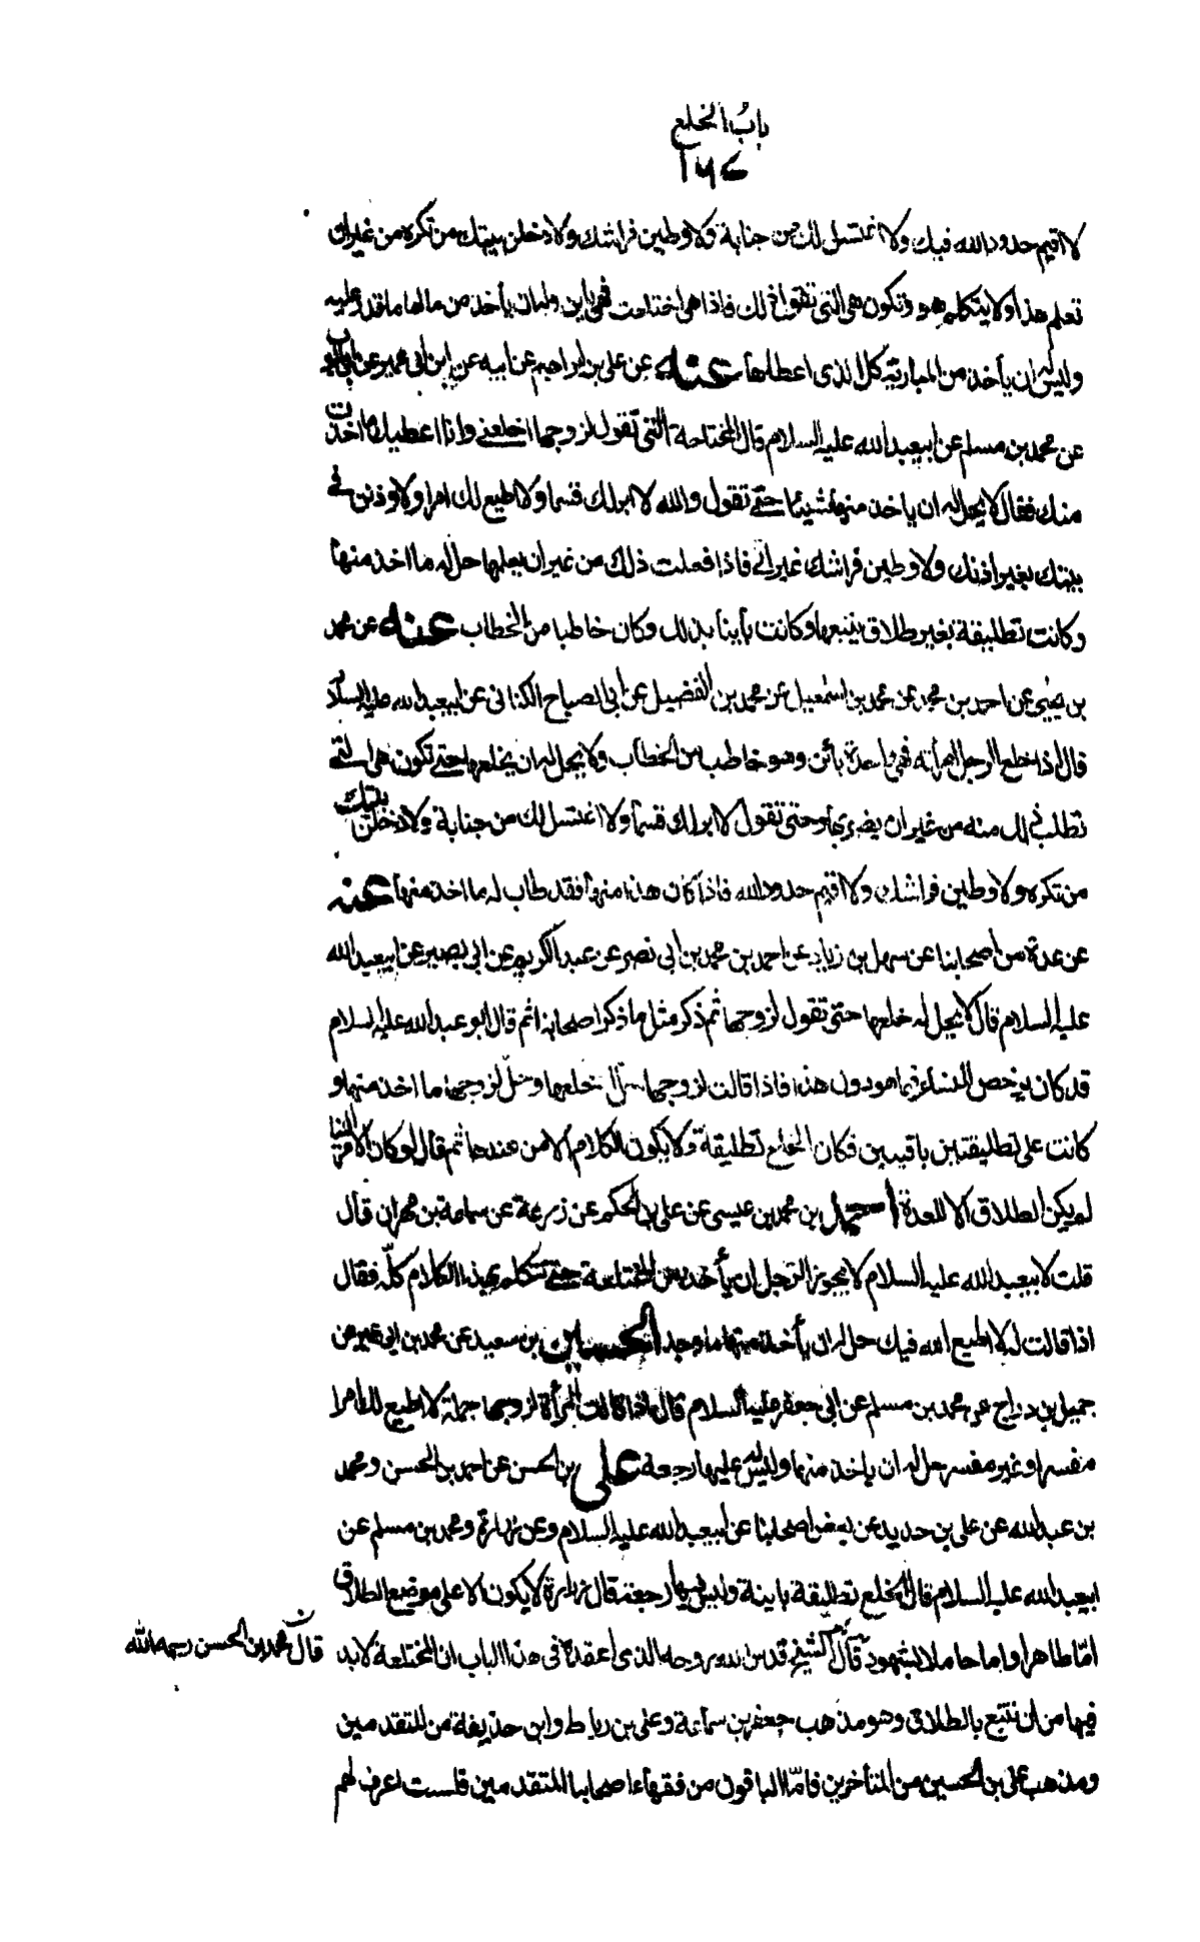 باب الخلع
١٦٧
لا اقيم حدود الله فيك ولا اغتسل لك من جنابة ولاوطين فراشك ولادخلن بيتك من تكره من غير ان
تعلم هذا ولا يتكلمهم وتكون هي التي تقول ذلك فاذا هي اختلعت فهي باين وله ان يأخذ من مالها ما قدر عليه
وليس له ان يأخذ من المبارية كل الذى اعطاها عنه عن على بن ابراهيم عن ابيه عن ابن ابى عمير عن
عن محمد بن مسلم عن ابيعبدالله عليه السلام قال المختلعة التي تقول لزوجها اخلعنى وانا اعطيك ما اخذت
منك فقال لا يحل له ان ياخذ منها شيئا حتى تقول والله لا ابر لك قسما ولا اطيع لك امرا ولاوذنن فى
بيتك بغير اذنك ولاوطين فراشك غيرك فاذا فعلت ذلك من غير ان يعلمها حل له ما اخذ منها
وكانت تطليقة بغير طلاق يتبعها وكانت بأينا بذلك وكان خاطبا من الخطاب عنه عن محمد
بن يحيى عن احمد بن محمد عن محمد بن اسمعيل عن محمد بن الفضيل عن ابى الصباح الكنانى عن ابيعبدالله عليه السلام
قال اذا خلع الرجل امرأته فهى واحدة بائن وهو خاطب من الخطاب ولا يحل له ان يخلعها حتى تكون هى التى
تطلب ذلك منه من غير ان يضر بها وحتى تقول لا ابر لك قسما ولا اغتسل لك من جنابة ولادخلن بيتك
من تكره ولاوطين فراشك ولا اقيم حدود الله فاذا كان هذا منها فقد طاب له ما اخذ منها عنه
عن عدة من اصحابنا عن سهل بن زياد عن احمد بن محمد بن ابى نصر عن عبد الكريم عن ابى بصير عن ابيعبدالله
عليه السلام قال لا يحل له خلعها حتى تقول لزوجها ثم ذكر مثل ما ذكر اصحابنا ثم قال ابو عبدالله عليه السلام
قد كان يرخص للنساء فيما هو دون هذا فاذا قالت لزوجها ذلك حل خلعها وحل لزوجها ما اخذ منها و
كانت على تطليقتين باقيتين وكان الخلع تطليقة ولا يكون الكلام الا من عندها ثم قال لو كان الامر الينا
لم يكن الطلاق الا للعدة احمد بن محمد بن عيسى عن على بن الحكم عن زرعة عن سماعة بن مهران قال
قلت لابيعبدالله عليه السلام لا يجوز للرجل ان يأخذ من المختلعة حتى تتكلم بهذا الكلام كله فقال
اذا قالت له لا اطيع الله فيك حل له ان يأخذ منها ما وجد الحسين بن سعيد عن محمد بن ابى عمير عن
جميل بن دراج عن محمد بن مسلم عن ابى جعفر عليه السلام قال اذا قالت المرأة لزوجها جملة لا اطيع لك امرا
مفسرا وغير مفسر حل له ان ياخذ منها وليس له عليها رجعة على بن الحسن عن احمد بن الحسن ومحمد
بن عبدالله عن على بن حديد عن بعض اصحابنا عن ابيعبدالله عليه السلام وعن زرارة ومحمد بن مسلم عن
ابيعبدالله عليه السلام قال الخلع تطليقة باينة وليس فيها رجعة قال زرارة لا يكون الا على موضع الطلاق
اما طاهرا واما حاملا بشهود قال الشيخ قدس الله روحه الذى اعقده فى هذا الباب ان المختلعة لابد
قال محمد بن الحسن رحمه الله
فيها من ان تتبع بالطلاق وهو مذهب جعفر بن سماعة وعلى بن رباط وابن حذيفة من المتقدمين
ومذهب على بن الحسين من المتأخرين فامّا الباقون من فقهاء اصحابنا المتقدمين فلست اعرف لهم